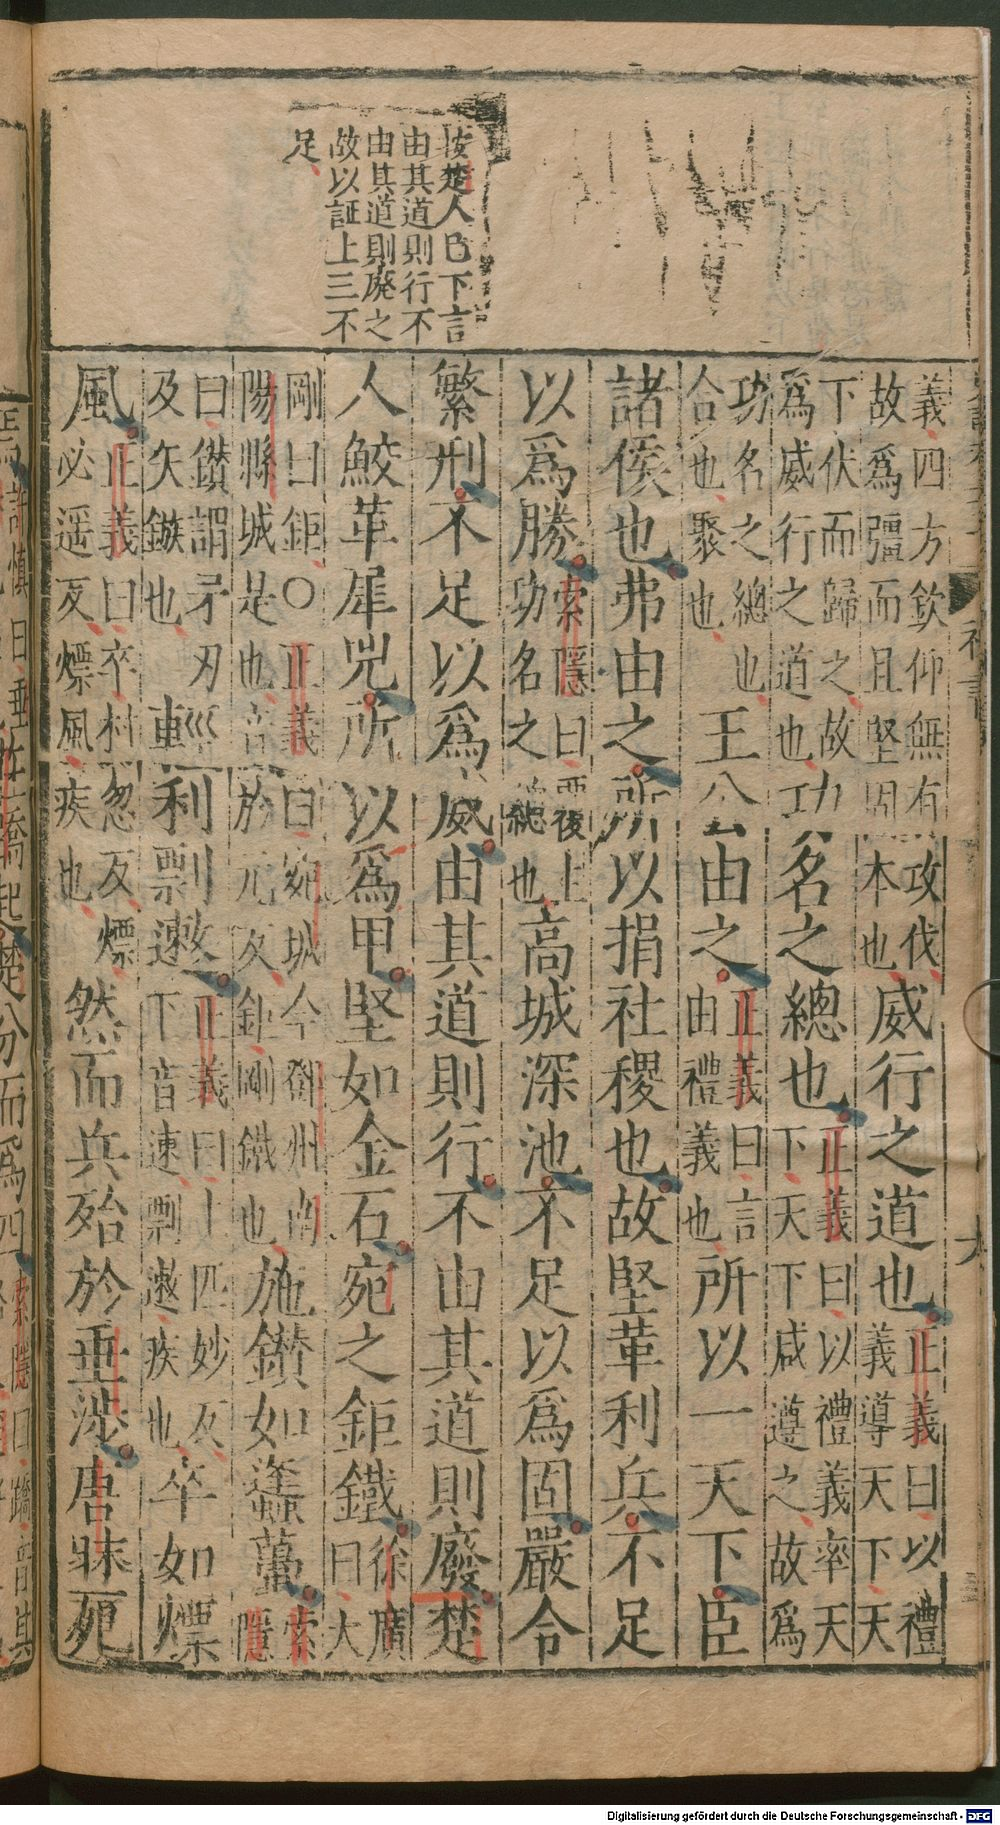 按楚人已下言
由其道則行不
由其道則廃之
故以証上三不
足
義四方欽仰無有攻伐
故爲彊而且堅固本也
威行之道也
正義曰以禮
義導天下天
下伏而歸之故
爲威行之道也
功名之總也
正義曰以禮義率天
下天下咸遵之故爲
功名之總也
合也聚也
王公由之
正義曰言
由禮義也
所以一天下臣
諸侯也弗由之所以捐社稷也故堅革利兵不足
以爲勝
索隱曰
功名之總也
高城深池不足以爲固嚴令
繁刑不足以爲威由其道則行不由其道則廢楚
人鮫革犀兕所以爲甲堅如金石宛之鉅鐵
徐廣
曰大
剛曰鉅○正義曰宛城今鄧州南
陽縣城是也音於元反鉅剛鐵也
施鑚如蠭蠆
索
隱
曰鑚謂矛刃
及矢鏃也
輕利剽遫
正義曰上匹妙反
下音速剽遫疾也
卒如熛
風
正義曰卒村忽反熛
必遥反熛風疾也
然而兵殆於垂涉唐昧死
禮書
Digitalisierung gefördert durch die Deutsche Forschungsgemeinschaft - DFG